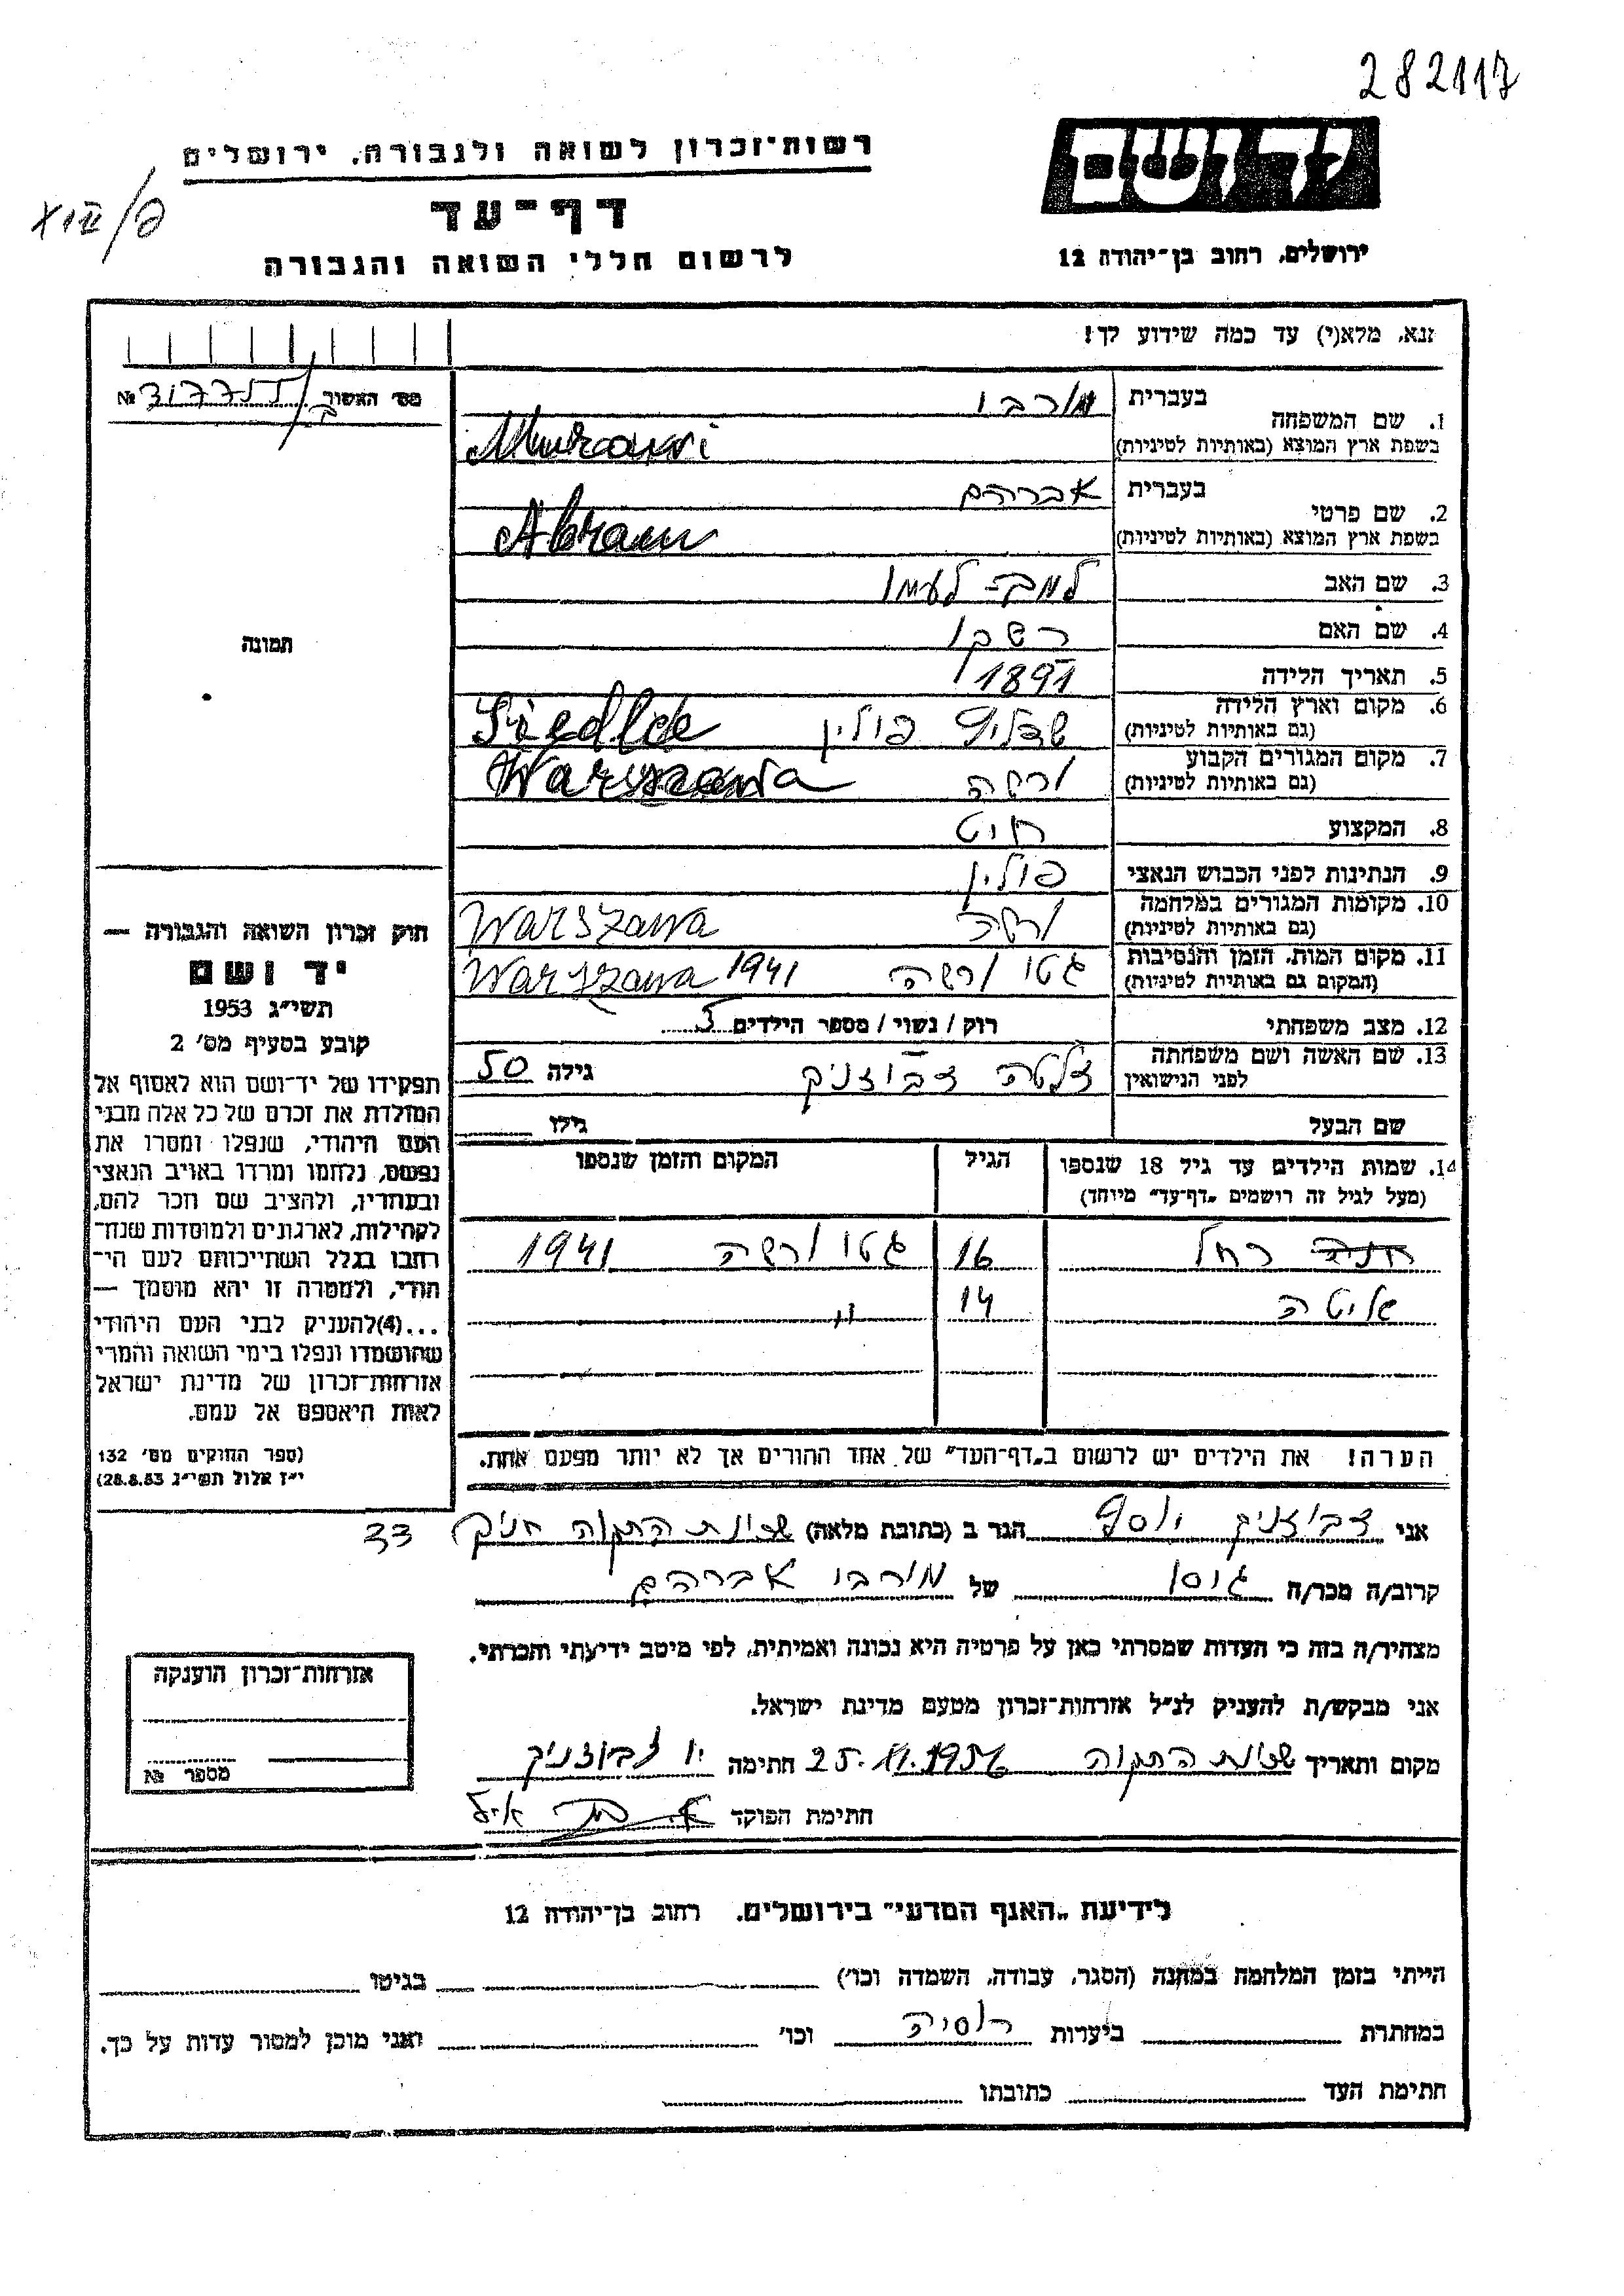 282117
רשות־זכרון לשואה ולגבורה, ירושלים
יד ושם
דף־עד
לרשום חללי השואה והגבורה
ירושלים, רחוב בן־יהודה 12
נא, מלא(י) עד כמה שידוע לך!
מס׳ האשור №
1. שם המשפחה
בעברית
בשפת ארץ המוצא (באותיות לטיניות)
2. שם פרטי
בעברית אברהם
בשפת ארץ המוצא (באותיות לטיניות) Abram
3. שם האב
4. שם האם
5. תאריך הלידה 1891
6. מקום וארץ הלידה
(גם באותיות לטיניות) שדליץ פולין Siedlce
7. מקום המגורים הקבוע
(גם באותיות לטיניות) ורשה Warszawa
8. המקצוע חיט
9. הנתינות לפני הכבוש הנאצי פולין
10. מקומות המגורים במלחמה
(גם באותיות לטיניות) ורשה Warszawa
11. מקום המות, הזמן והנסיבות
(המקום גם באותיות לטיניות) גטו ורשה 1941 Warszawa
12. מצב משפחתי רוק / נשוי / מספר הילדים
13. שם האשה ושם משפחתה
לפני הנישואין זלטה גילה 50
שם הבעל גילו
14. שמות הילדים עד גיל 18 שנספו
(מעל לגיל זה רושמים „דף־עד״ מיוחד)
הגיל
המקום והזמן שנספו
רחל 16 גטו ורשה 1941
איטה 14 "
הערה! את הילדים יש לרשום ב„דף־העד״ של אחד ההורים אך לא יותר מפעם אחת.
תמונה
חוק זכרון השואה והגבורה —
יד ושם
תשי״ג 1953
קובע בסעיף מס׳ 2
תפקידו של יד־ושם הוא לאסוף אל
המולדת את זכרם של כל אלה מבני
העם היהודי, שנפלו ומסרו את
נפשם, נלחמו ומרדו באויב הנאצי
ובעוזריו, ולהציב שם וזכר להם,
לקהילות, לארגונים ולמוסדות שנח־
רבו בגלל השתייכותם לעם הי־
הודי, ולמטרה זו יהא מוסמך —
...(4)להעניק לבני העם היהודי
שהושמדו ונפלו בימי השואה והמרי
אזרחות־זכרון של מדינת ישראל
לאות היאספם אל עמם.
(ספר החוקים מס׳ 132
י״ז אלול תשי״ג 28.8.53)
אני יוסף הגר ב (כתובת מלאה) שכונת התקוה 33
קרוב/ה מכר/ה גיסו של אברהם
מצהיר/ה בזה כי העדות שמסרתי כאן על פרטיה היא נכונה ואמיתית, לפי מיטב ידיעתי והכרתי.
אני מבקש/ת להעניק לנ״ל אזרחות־זכרון מטעם מדינת ישראל.
מקום ותאריך שכונת התקוה 25.11.1956 חתימה
חתימת הפוקד
אזרחות־זכרון הוענקה
מספר №
לידיעת „האגף המדעי״ בירושלים, רחוב בן־יהודה 12
הייתי בזמן המלחמה במחנה (הסגר, עבודה, השמדה וכו׳) בגיטו
במחתרת ביערות רוסיה וכו׳ ואני מוכן למסור עדות על כך.
חתימת העד כתובתו